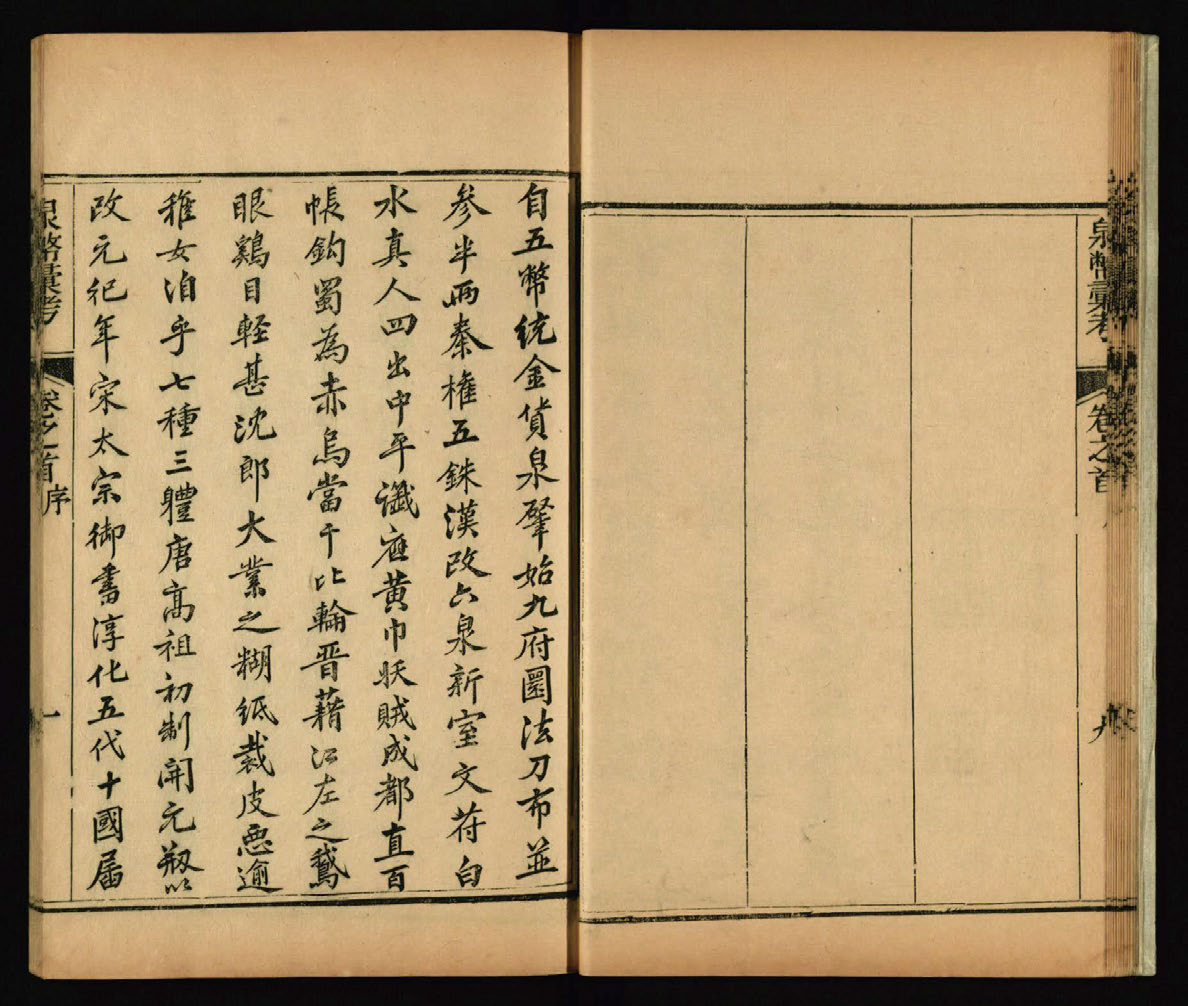 泉幣彙考
卷之首
九
自五幣統金貨泉肇始九府圜法刀布並
参半兩秦權五銖漢改六泉新室文符白
水真人四出中平讖应黄巾妖賊成都直百
帳鈎蜀為赤烏當千比輪晋藉江左之鵝
眼鷄目輕甚沈郎大業之糊紙裁皮悪逾
稚女洎乎七種三軆唐高祖初制開元
以
改元纪年宋太宗御書淳化五代十國届
泉幣彙考
卷之首
序
一